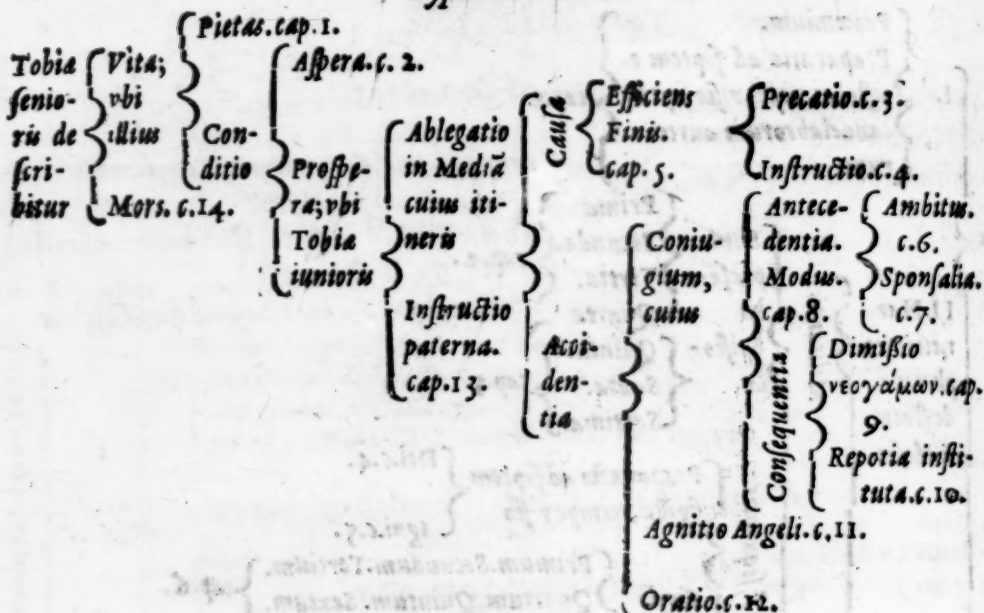 Tobiæ
ſenio-
ris de
ſcri-
bitur
Vita;
vbi
illius
Mors. c.14.
Pietas. cap.1.
Con-
ditio
Aſpera. c. 2.
Proſpe-
ra; vbi
Tobiæ
iunioris
Ablegatio
in Mediã
cuius iti-
neris
Inſtructio
paterna.
cap.13.
Cauſa
Efficiens
Finis.
cap. 5.
Precatio. c. 3.
Inſtructio. c. 4.
Acci-
den-
tia
Coniu-
gium,
cuius
Antece-
dentia.
Modus.
cap. 8.
Ambitus.
c. 6.
Sponſalia.
c. 7.
Conſequentia
Dimiſsio
νεογάμων. cap.
9.
Repotia inſti-
tuta. c. 10.
Agnitio Angeli. c. 11.
Oratio. c. 12.